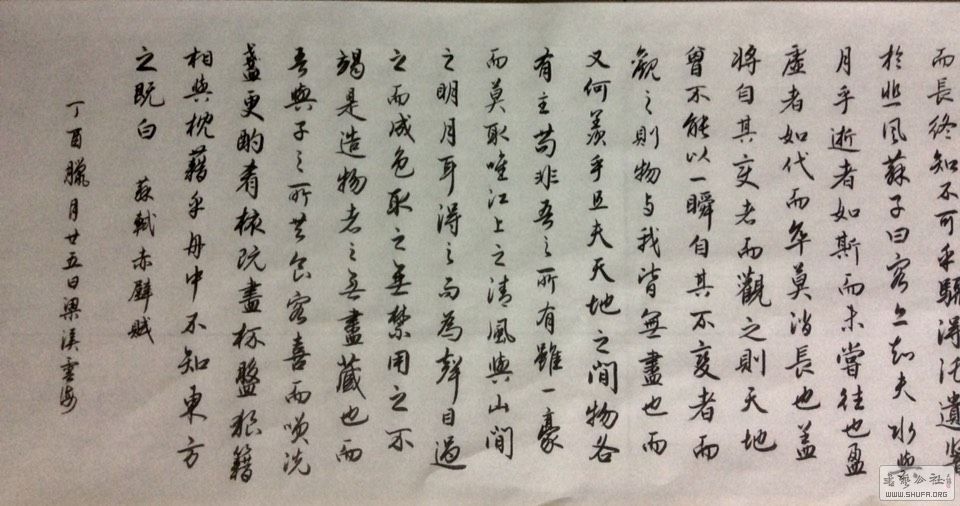 而長終知不可乎驟得托遺響
於悲風蘇子曰客亦知夫水與
月乎逝者如斯而未嘗往也盈
虛者如代而卒莫消長也盖
將自其变者而觀之則天地
曾不能以一瞬自其不变者而
觀之則物与我皆無盡也而
又何羨乎且夫天地之間物各
有主苟非吾之所有雖一豪
而莫取唯江上之清風與山間
之明月耳得之而為聲目遇
之而成色取之無禁用之不
竭是造物者之無盡藏也而
吾與子之所共食客喜而笑洗
盞更酌肴核既盡杯盤狼籍
相與枕藉乎舟中不知東方
之既白 蘇軾赤壁賦
丁酉臘月廿五日梁溪雲海
WWW.SHUFA.ORG